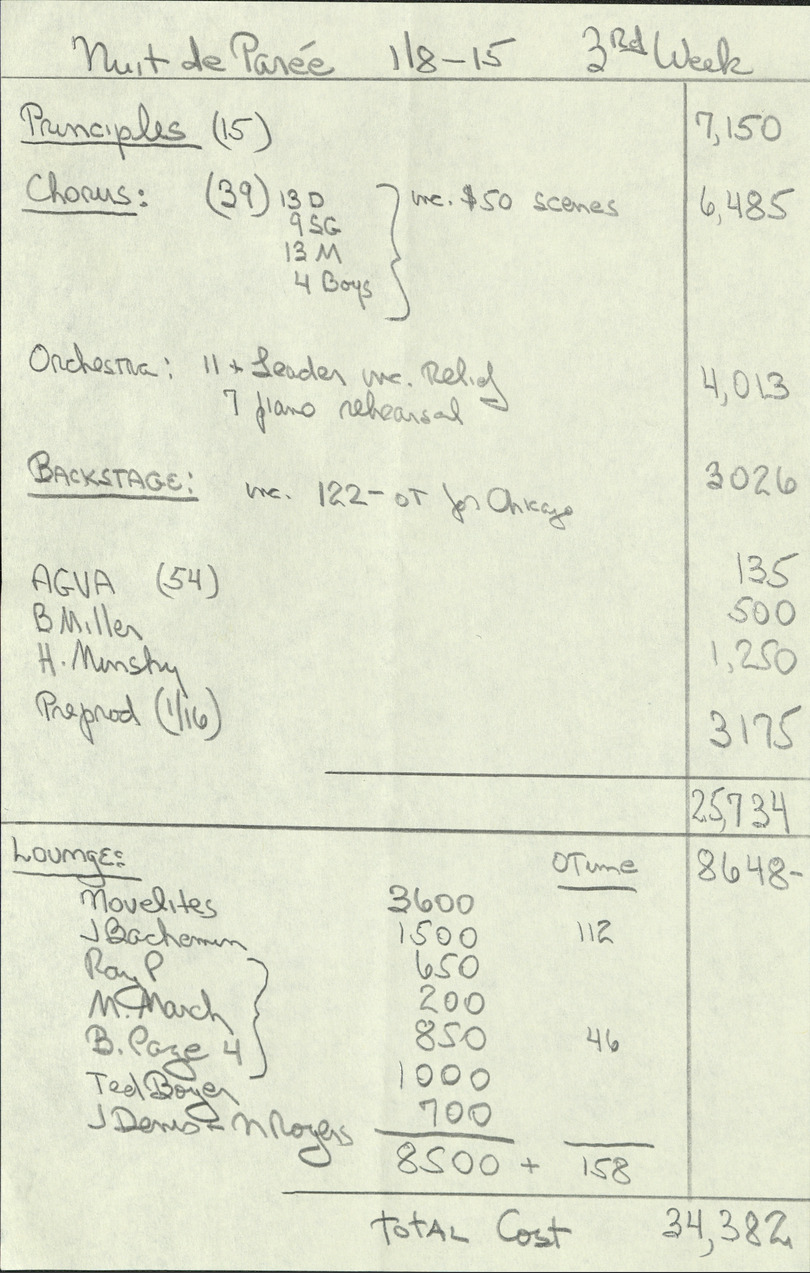 Nuit de Parée 1/8-15 3rd Week
Principles (15) 7,150
Chorus: (39) 13 D inc. $50 scenes 6,485
9 SG
13 M
4 Boys
Orchestra: 11 + Leader inc. Relief 4,013
7 piano rehearsal
BACKSTAGE: inc. 122- OT for Chicago 3026
AGVA (54) 135
B Miller 500
H. Minsky 1,250
Preprod (1/16) 3175
25,734
LOUNGE: OTime 8648-
Novelites 3600
J Bachemin 1500 112
Ray P 650
M. March 200
B. Page 4 850 46
Ted Boyer 1000
J Denis + N Rogers 700
8500 + 158
TOTAL Cost 34,382